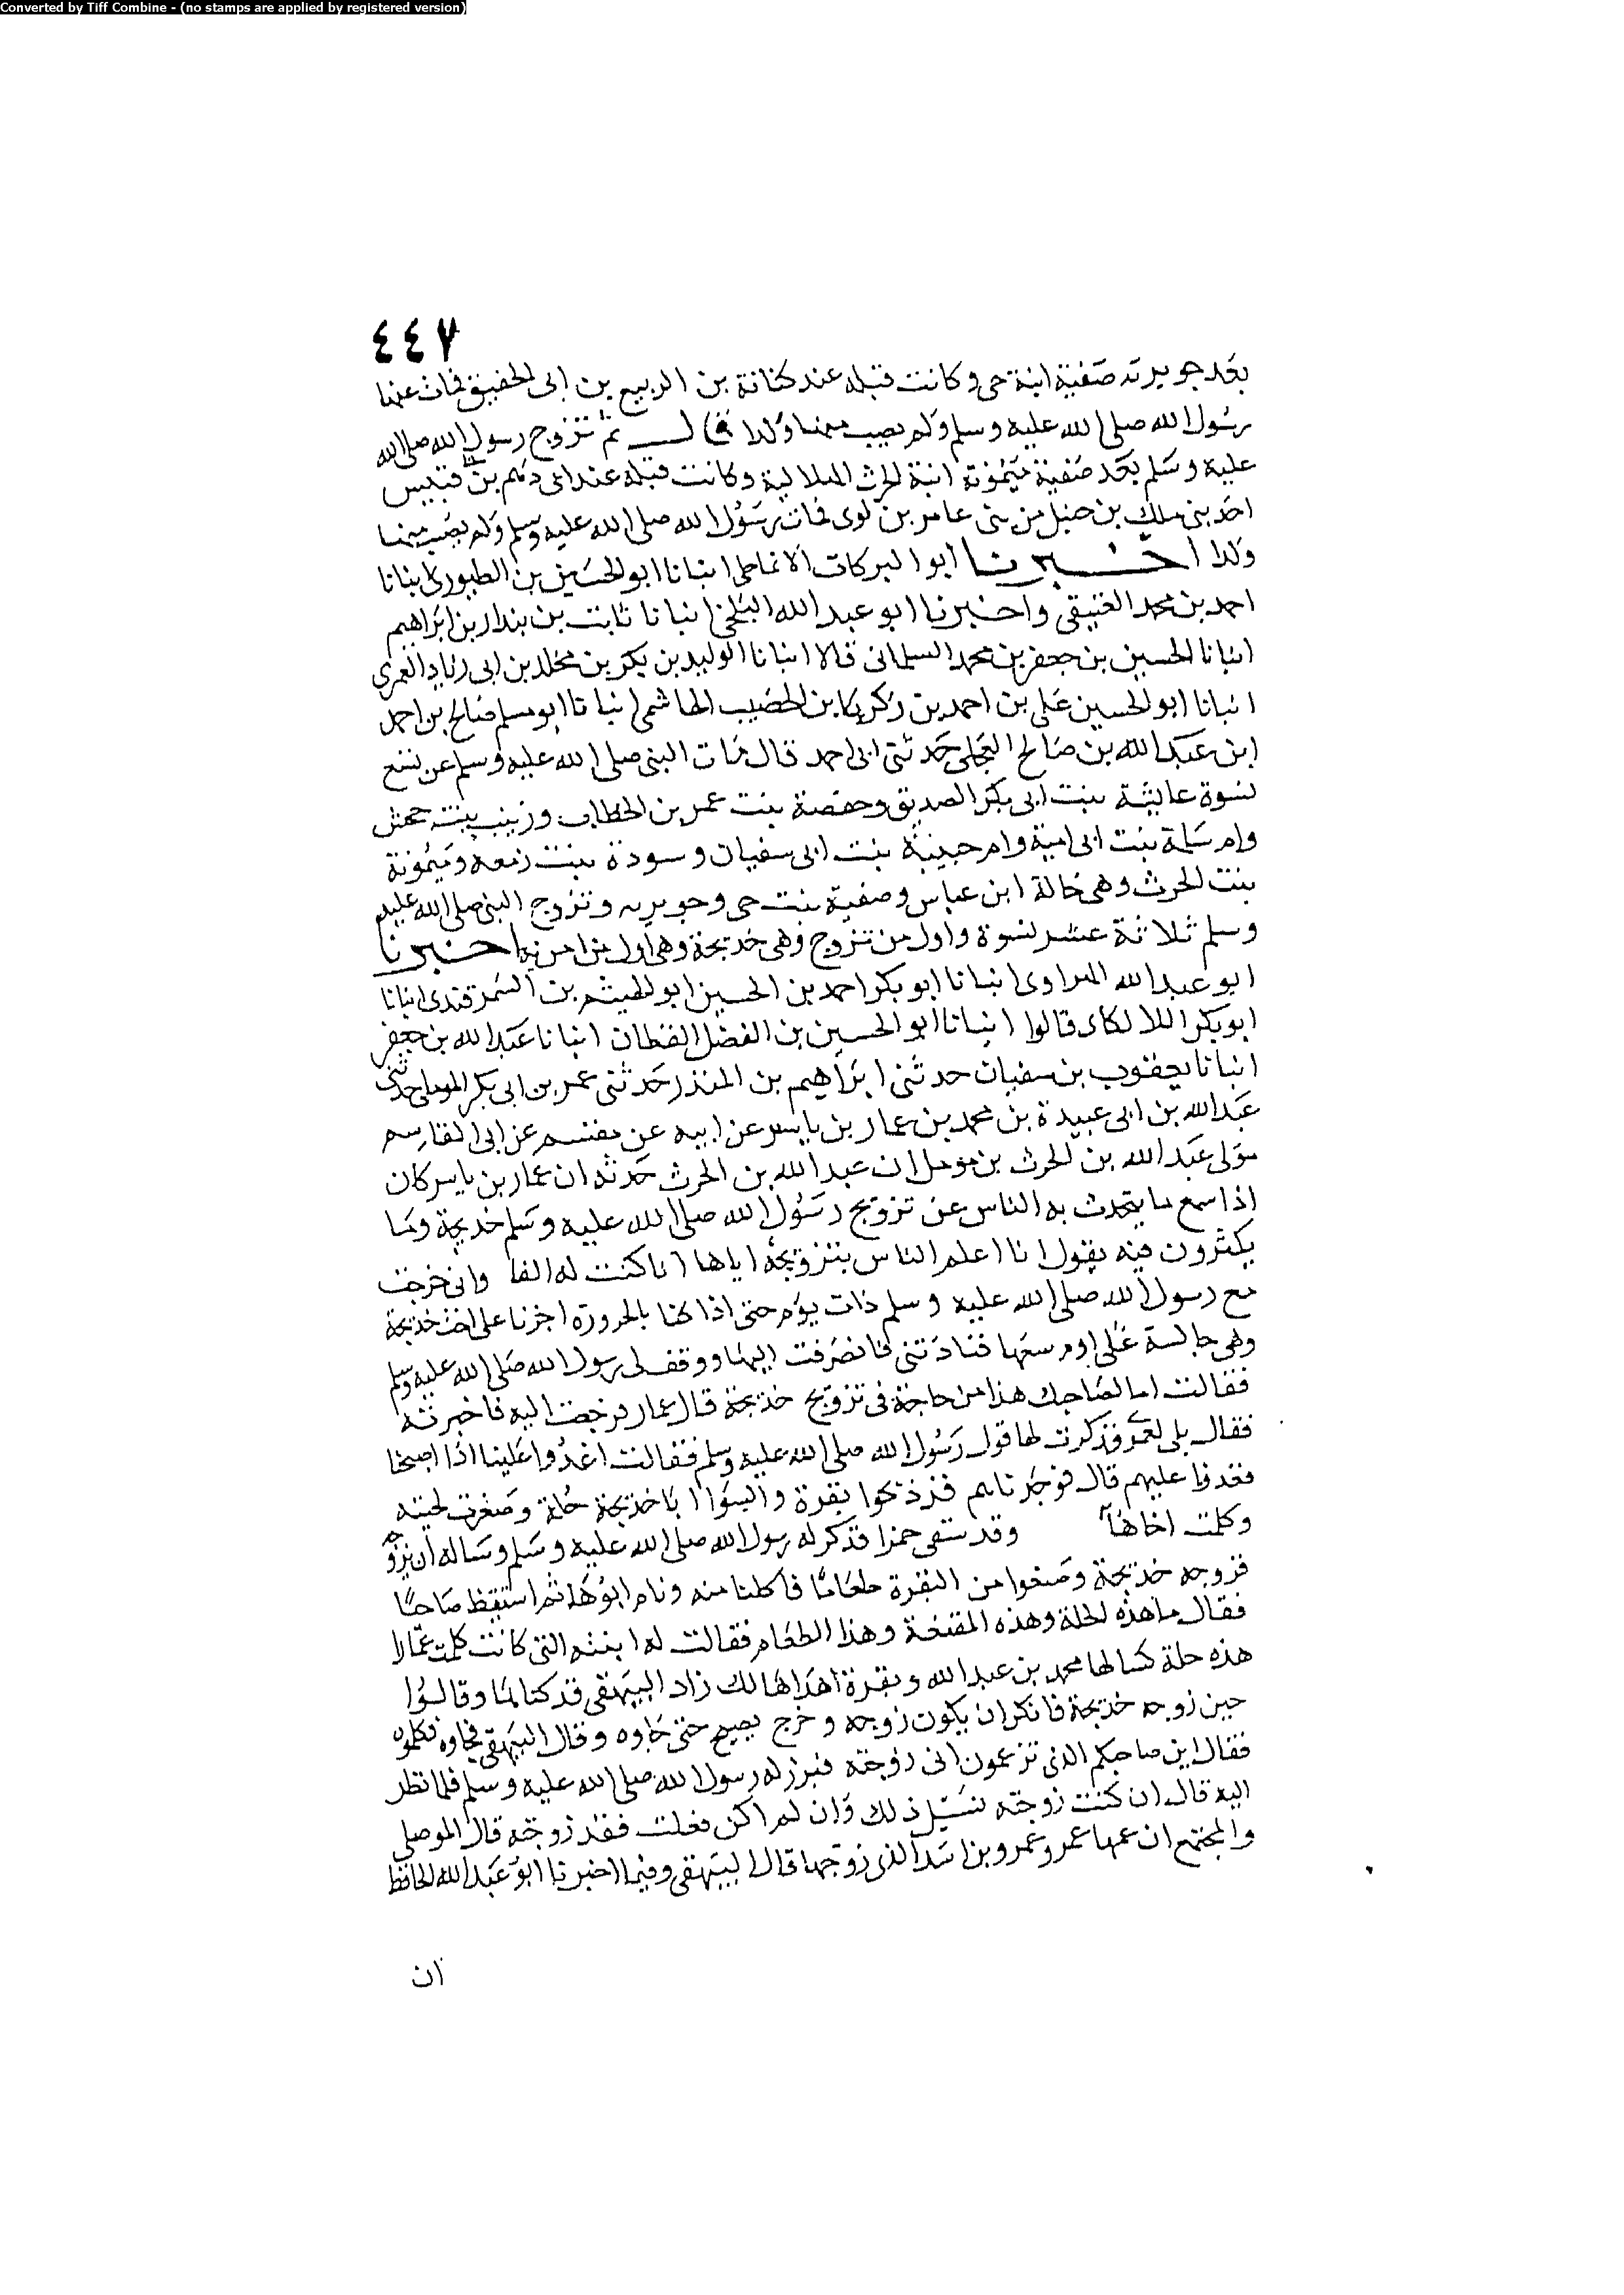 Converted by Tiff Combine - (no stamps are applied by registered version)
٤٤٧
بعد جويرية صفية ابنة حي وكانت قبله عند كنانة بن الربيع بن ابى الحقيق فمات عنها
رسول الله صلى الله عليه وسلم ولم يصب منها ولدا قال ثم تزوج رسول الله صلى الله
عليه وسلم بعد صفية ميمونة ابنة الحرث الهلالية وكانت قبله عند ابى رهم بن قيس
احد بنى ملك بن حنبل من بنى عامر بن لوى فمات رسول الله صلى الله عليه وسلم ولم يصب منها
ولدا اخبرنا ابو البركات الانماطى انبانا ابو الحسين بن الطيورى انبانا
احمد بن محمد العتيقى واخبرنا ابو عبد الله البلخى انبانا ثابت بن بندار بن ابراهيم
انبانا الحسين بن جعفر بن محمد السلمانى قالا انبانا الوليد بن بكر بن مخلد بن ابى زياد العمرى
انبانا ابو الحسين على بن احمد بن زكريا بن الخصيب الهاشمى انبانا ابو مسلم صالح بن احمد
ابن عبد الله بن صالح العجلى حدثنى ابى احمد قال مات النبى صلى الله عليه وسلم عن تسع
نسوة عايشة بنت ابى بكر الصديق وحفصة بنت عمر بن الخطاب وزينب بنت جحش
وام سلمة بنت ابى امية وام حبيبة بنت ابى سفيان وسودة بنت زمعه وميمونة
بنت الحرث وهى خالة ابن عباس وصفية بنت حى وجويريه وتزوج النبى صلى الله عليه
وسلم ثلاثة عشر نسوة واول من تزوج وهى خديجة وهى اول من امن به اخبرنا
ابو عبد الله الفراوى انبانا ابو بكر احمد بن الحسين ابو الهيثم بن السمرقندى انبانا
ابو بكر اللالكاى قالوا انبانا ابو الحسين بن الفضل القطان انبانا عبد الله بن جعفر
انبانا يعقوب بن سفيان حدثنى ابراهيم بن المنذر حدثنى عمر بن ابى بكر الموصلى حدثنى
عبد الله بن ابى عبيدة بن محمد بن عمار بن ياسر عن ابيه عن مقسم عن ابى القاسم
مولى عبد الله بن الحرث بن نوفل ان عبد الله بن الحرث حدثه ان عمار بن ياسر كان
اذا سمع ما يتحدث به الناس عن تزويج رسول الله صلى الله عليه وسلم خديجة وما
يكثرون فيه يقول انا اعلم الناس بتزويجه اياها انا كنت له الفا وانى خرجت
مع رسول الله صلى الله عليه وسلم ذات يوم حتى اذا كنا بالحزورة اجزنا على اخت خديجة
وهى جالسة على ادم سعها فنادتنى فانصرفت اليها ووقف لى رسول الله صلى الله عليه وسلم
فقالت اما لصاحبك هذا من حاجة فى تزويج خديجة قال عمار فرجعت اليه فاخبرته
فقال بلى لعمرى فذكرت لها قول رسول الله صلى الله عليه وسلم فقالت اغدوا علينا اذا اصبحنا
فغدونا عليهم قال فوجدناهم قد ذبحوا بقرة والبسوا ابا خديجة حلة وصفرت لحيته
وكلمت اخاها وقد سقى خمرا فذكر له رسول الله صلى الله عليه وسلم وساله ان يزوجه
فزوجه خديجة وصنعوا من البقرة طعاما فاكلنا منه ونام ابوها ثم استيقظ صاحيا
فقال ما هذه الحلة وهذه وهذا الطعام فقالت له ابنته التى كانت كلمت عمارا
هذه حلة كسالها محمد بن عبد الله وبقرة اهداها لك زاد البيهقى قد وقالوا
حين زوجه خديجة فانكر ان يكون زوجه وخرج يصيح حتى جاوه وقال البيهقى فجاوه فكلموه
فقال اين صاحبكم الذى تزعمون انى زوجته فبرز له رسول الله صلى الله عليه وسلم فلما نظر
اليه قال ان كنت زوجته فسبيل ذلك وان لم اكن فعلت فقد زوجته قال الموصلى
والمجتمع ان عمها عمرو بن اسد الذى زوجها قال البيهقى وفيما اخبرنا ابو عبد الله الحافظ
ان